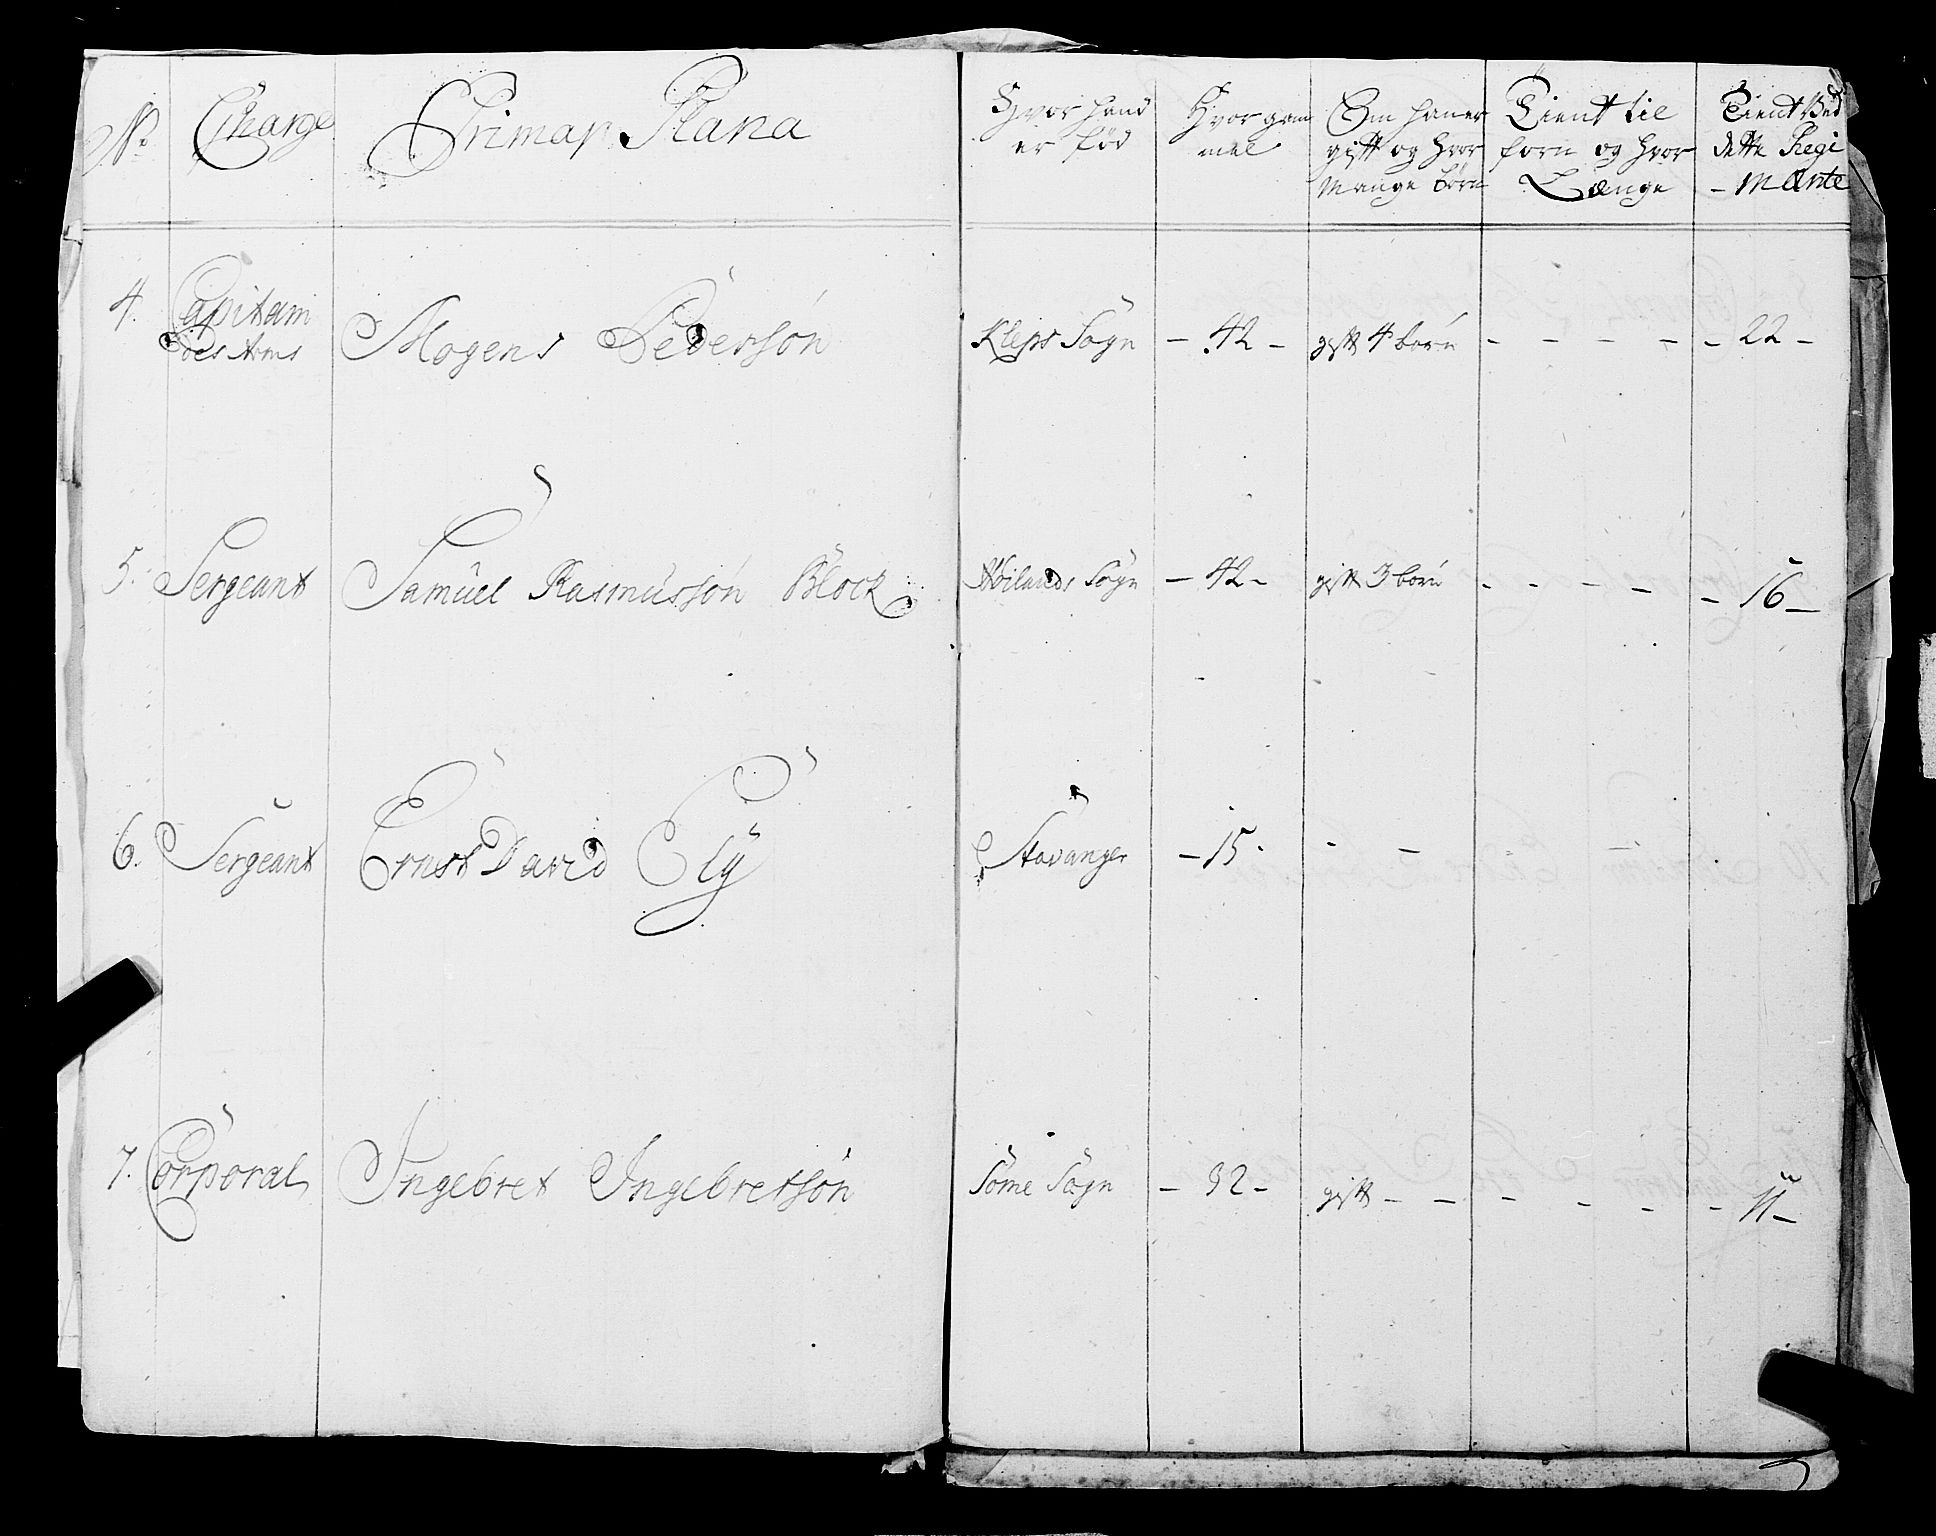 No Charge Primap Plana Hvor hand er föd Hvor gam mel Om han er gift og hvor Mange börn Tient til forn og hvor Længe Tient Ved dette Regi - Mænte
4. Capitain des Arms Mogens Pedersön Kleps Sogn - 42 - gift 4 börn - - - - - 22 -
5. Sergeant Samuel Rasmussön Block Höilands Sogn - 42 - gift 3 börn - - - - - 16 -
6. Sergeant Ernst David Stavanger - 15 - - -
7. Corporal Ingebret Ingebretsön Some Sogn - 32 - gift - - - - - - 11 -